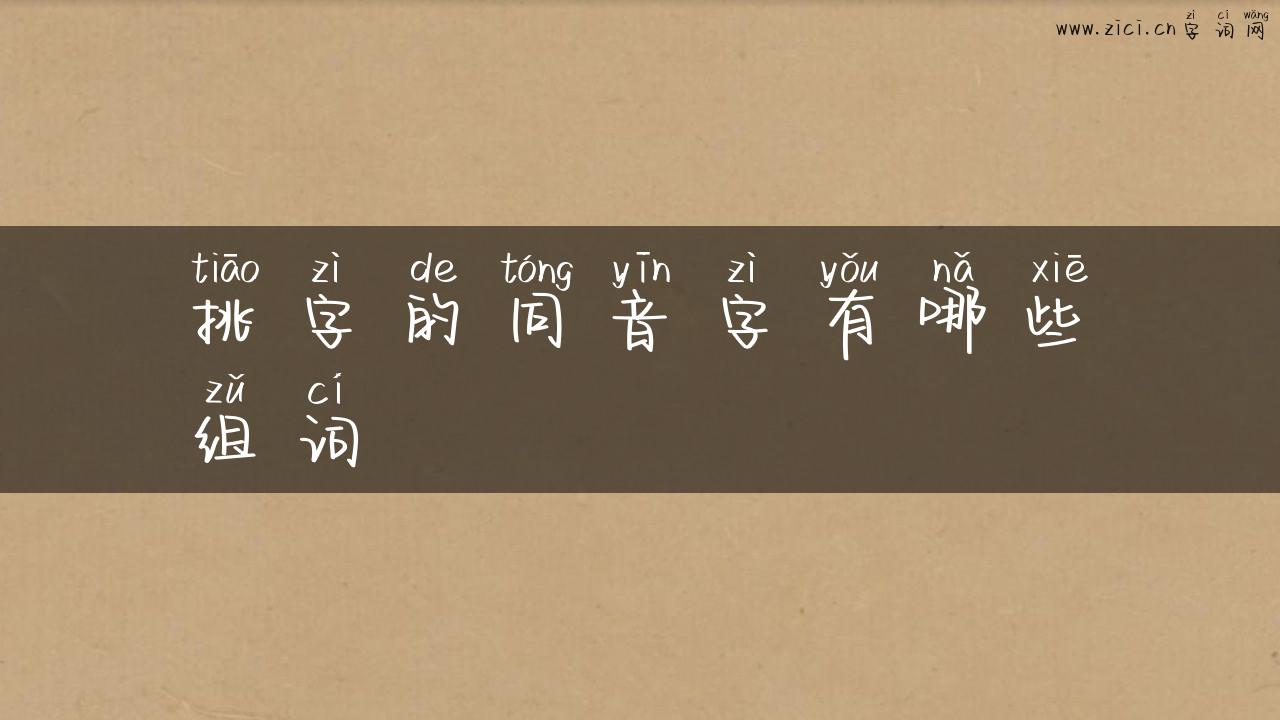 zì cí wǎng
www.zici.cn 字 词 网
tiāo zì de tóng yīn zì yǒu nǎ xiē
挑 字 的 同 音 字 有 哪 些
zǔ cí
组 词